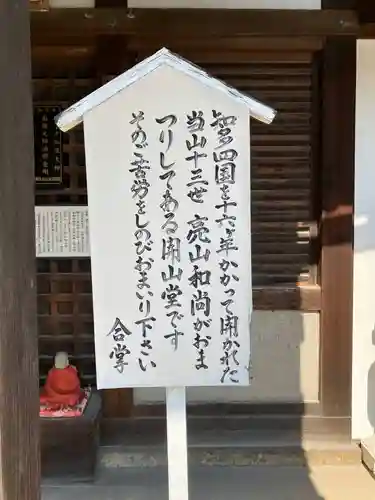 知多四国を十六ヶ年かかって開かれた
当山十三世 亮山和尚がおま
つりしてある開山堂です
そのご苦労をしのびおまいり下さい
合掌